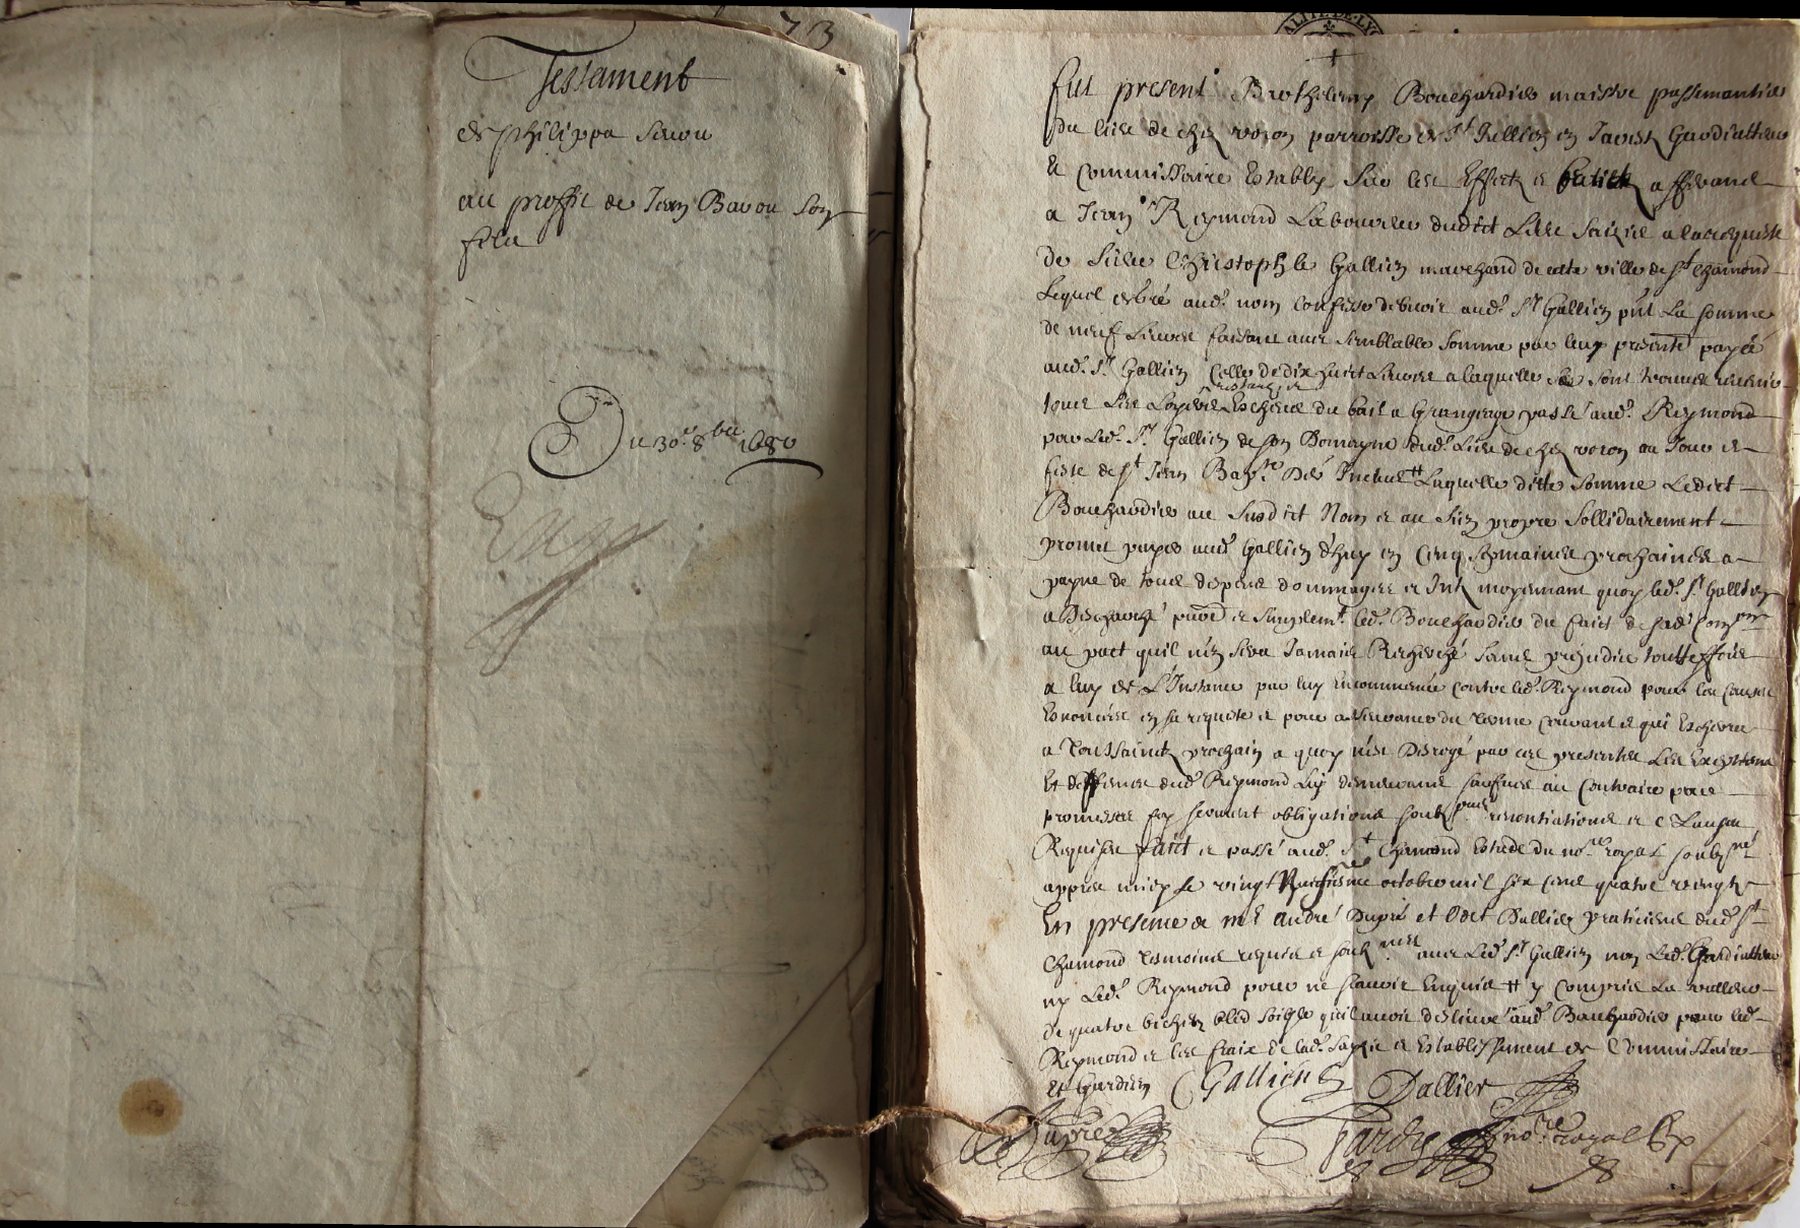 73
Testament
de phillippa
au proffit de Jean Bavou son
filz
Du 30.e 8bre 1680
GENERALITE DE LYON
Fut present Barthelemy Bouchardier maistre passemantier
du lieu de chez voron parroisse de St Jullien en Jarest Gardiatteur
et Commissaire Estably sur les Effectz et fruictz affermé
a Jean Reymond Laboureur dudict Lieu saizis a la requeste
de Sieur Christophle Gallien marchand de cette ville de St Chamond
Lequel de gré aud. nom confesse debvoir aud. Sr Gallien pnt La somme
de neuf Livres faisant avec semblable somme par luy presente payée
aud. Sr Gallien Celle de dix huict Livres a laquelle se sont trouvés revenir
tous les Loyers Escheus du bail a Grangeage passé aud. Reymond
par Led. Sr Gallien de son Domayne dud. Lieu de chez voron au Jour et
feste de St Jean Bapte der # Laquelle ditte somme Ledict
Bouchardier au susdict Nom et au sien propre sollidairement
promet payer aud. Gallien d'huy en cinq sepmaines prochaines a
payne de tous despens dommages et Intz moyennant quoy led. Sr Gallien
a Deschargé et simplemt. led. Bouchardier du faict de sad. Comon
au pact quil n'en sera Jamais Recherché sans prejudice touttesfois
a luy de L'Instance par luy encommencée contre led. Reymond pour les causes
Enoncées en sa requeste et pour du terme courant et qui Eschevra
a Toussainctz prochain a quoy n'est Desrogé par ces presentes Les Exceptions
Et deffences dud. Reymond Luy demeurant saufves au Contraire par
promesses foy serment obligations renontiations et Clauses
Requises faict et passé aud. St Chamond Estude du nore royal soubzné
appres midy le vingt octobre mil six cent quatre vingtz
En presence de Me André Dupré et Odet Dallier praticiens dud. St
Chamond tesmoins requis et soubznés avec Led. Sr Gallien non Led. Gardiatteur
ny Led. Reymond pour ne scavoir Enquis # y Compris La valleur
de quatre bichetz bled soigle quil avoit deslivré aud. Bouchardier pour led.
Reymond et les fraix de lad. saizie et Establissement de Commissaire
et Gardien Gallien Dallier
Dupré nore royal